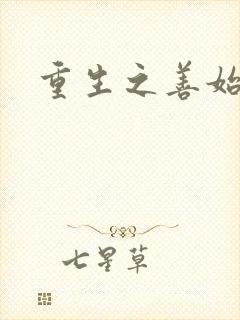 重生之善始
七星草